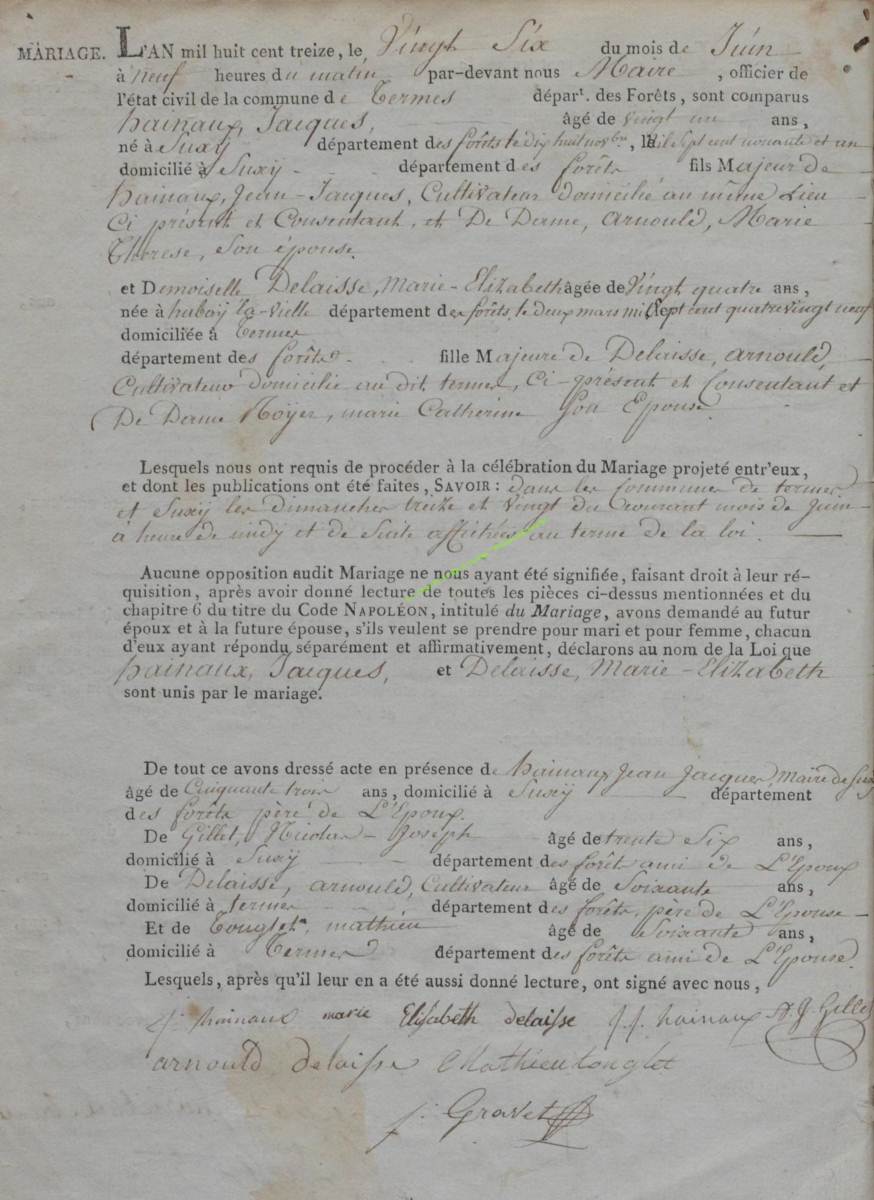 MARIAGE. L'AN mil huit cent treize, le Vingt Six du mois de Juin
à neuf heures du matin par-devant nous Maire , officier de
l'état civil de la commune de Termes départ. des Forêts, sont comparus
hainaux, Jacques, âgé de vingt un ans,
né à Suxÿ département des forêts le dix huit novbre, Mil Sept cent nonante et un
domicilié à Suxÿ département des forêts fils Majeur de
hainaux, Jean-Jacques, Cultivateur domicilié au même Lieu
Ci présent et Consentant, et De Dame, arnould, Marie
Therese, Son épouse.
et Demoiselle Delaisse, Marie-Elizabeth âgée de Vingt quatre ans,
née à habaÿ la-vielle département des forêts, le deux mars mil Sept cent quatre vingt neuf
domiciliée à termes
département des forêts fille Majeure de Delaisse, arnould,
Cultivateur domicilié au dit termes, Ci-présent et Consentant et
De Dame Roÿer, marie Catherine Son Epouse.
Lesquels nous ont requis de procéder à la célébration du Mariage projeté entr'eux,
et dont les publications ont été faites, SAVOIR : dans les Communes de termes
et Suxÿ les dimanches treize et vingt du courant mois de Juin
à heure de midy et de Suite affichées au terme de la loi.
Aucune opposition audit Mariage ne nous ayant été signifiée, faisant droit à leur ré-
quisition, après avoir donné lecture de toutes les pièces ci-dessus mentionnées et du
chapitre 6 du titre du Code NAPOLÉON, intitulé du Mariage, avons demandé au futur
époux et à la future épouse, s'ils veulent se prendre pour mari et pour femme, chacun
d'eux ayant répondu séparément et affirmativement, déclarons au nom de la Loi que
hainaux, Jacques, et Delaisse, Marie-Elizabeth
sont unis par le mariage.
De tout ce avons dressé acte en présence de hainaux Jean Jacques, Maire de Suxÿ
âgé de Cinquante trois ans, domicilié à Suxÿ département
des forêts père de L'Epoux.
De Gillet, Nicolas-Joseph âgé de trente Six ans,
domicilié à Suxÿ département des forêts ami de L'Epoux
De Delaisse, arnould, Cultivateur âgé de Soixante ans,
domicilié à termes département des forêts, père de L'Epouse
Et de Tonglet, mathieu âgé de Soixante ans,
domicilié à Termes département des forêts ami de L'Epouse.
Lesquels, après qu'il leur en a été aussi donné lecture, ont signé avec nous,
j. hainaux marie Elisabeth delaisse j. j. hainaux N. J. Gillet
arnould delaisse Mathieu tonglet
j. Gravet